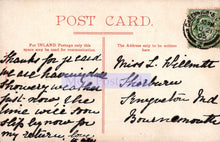 POST CARD.
For INLAND Postage only this space may be used for communication.
The address only to be written here.
Thanks for p. card
we are having
showery weather
just now the
time will soon
slip by now for
my return. love
Miss L. Willmott
Sherburn
Road
Bournemouth